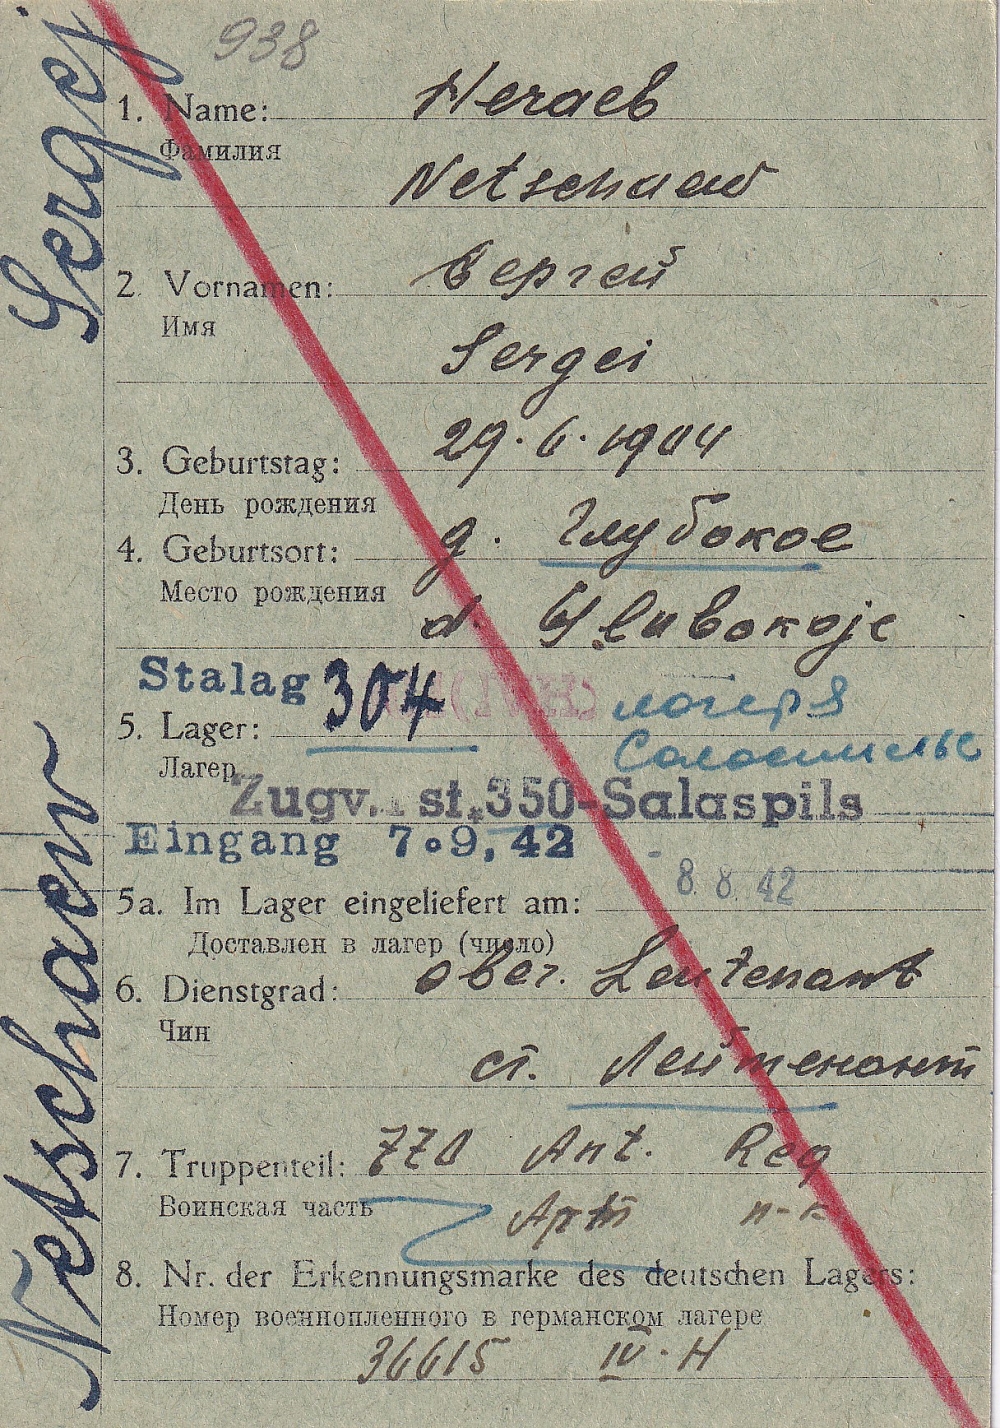 938
Netschaew Sergej
1. Name: Нечаев
Фамилия
Netschaew
2. Vornamen: Сергей
Имя
Sergei
3. Geburtstag: 29.6.1904
День рождения
4. Geburtsort: д. Глубокое
Место рождения
d. Glubokoje
Stalag 304
5. Lager: лагерь
Саласпильс
Лагерь
Zugv. st. 350-Salaspils
Eingang 7.9.42
8.8.42
5a. Im Lager eingeliefert am:
Доставлен в лагер (число)
6. Dienstgrad: ober. Leutenant
Чин
ст. Лейтенант
7. Truppenteil: 770 Art. Reg
Воинская часть Арт п-к
8. Nr. der Erkennungsmarke des deutschen Lagers:
Номер военнопленного в германском лагере
36615 IV-H